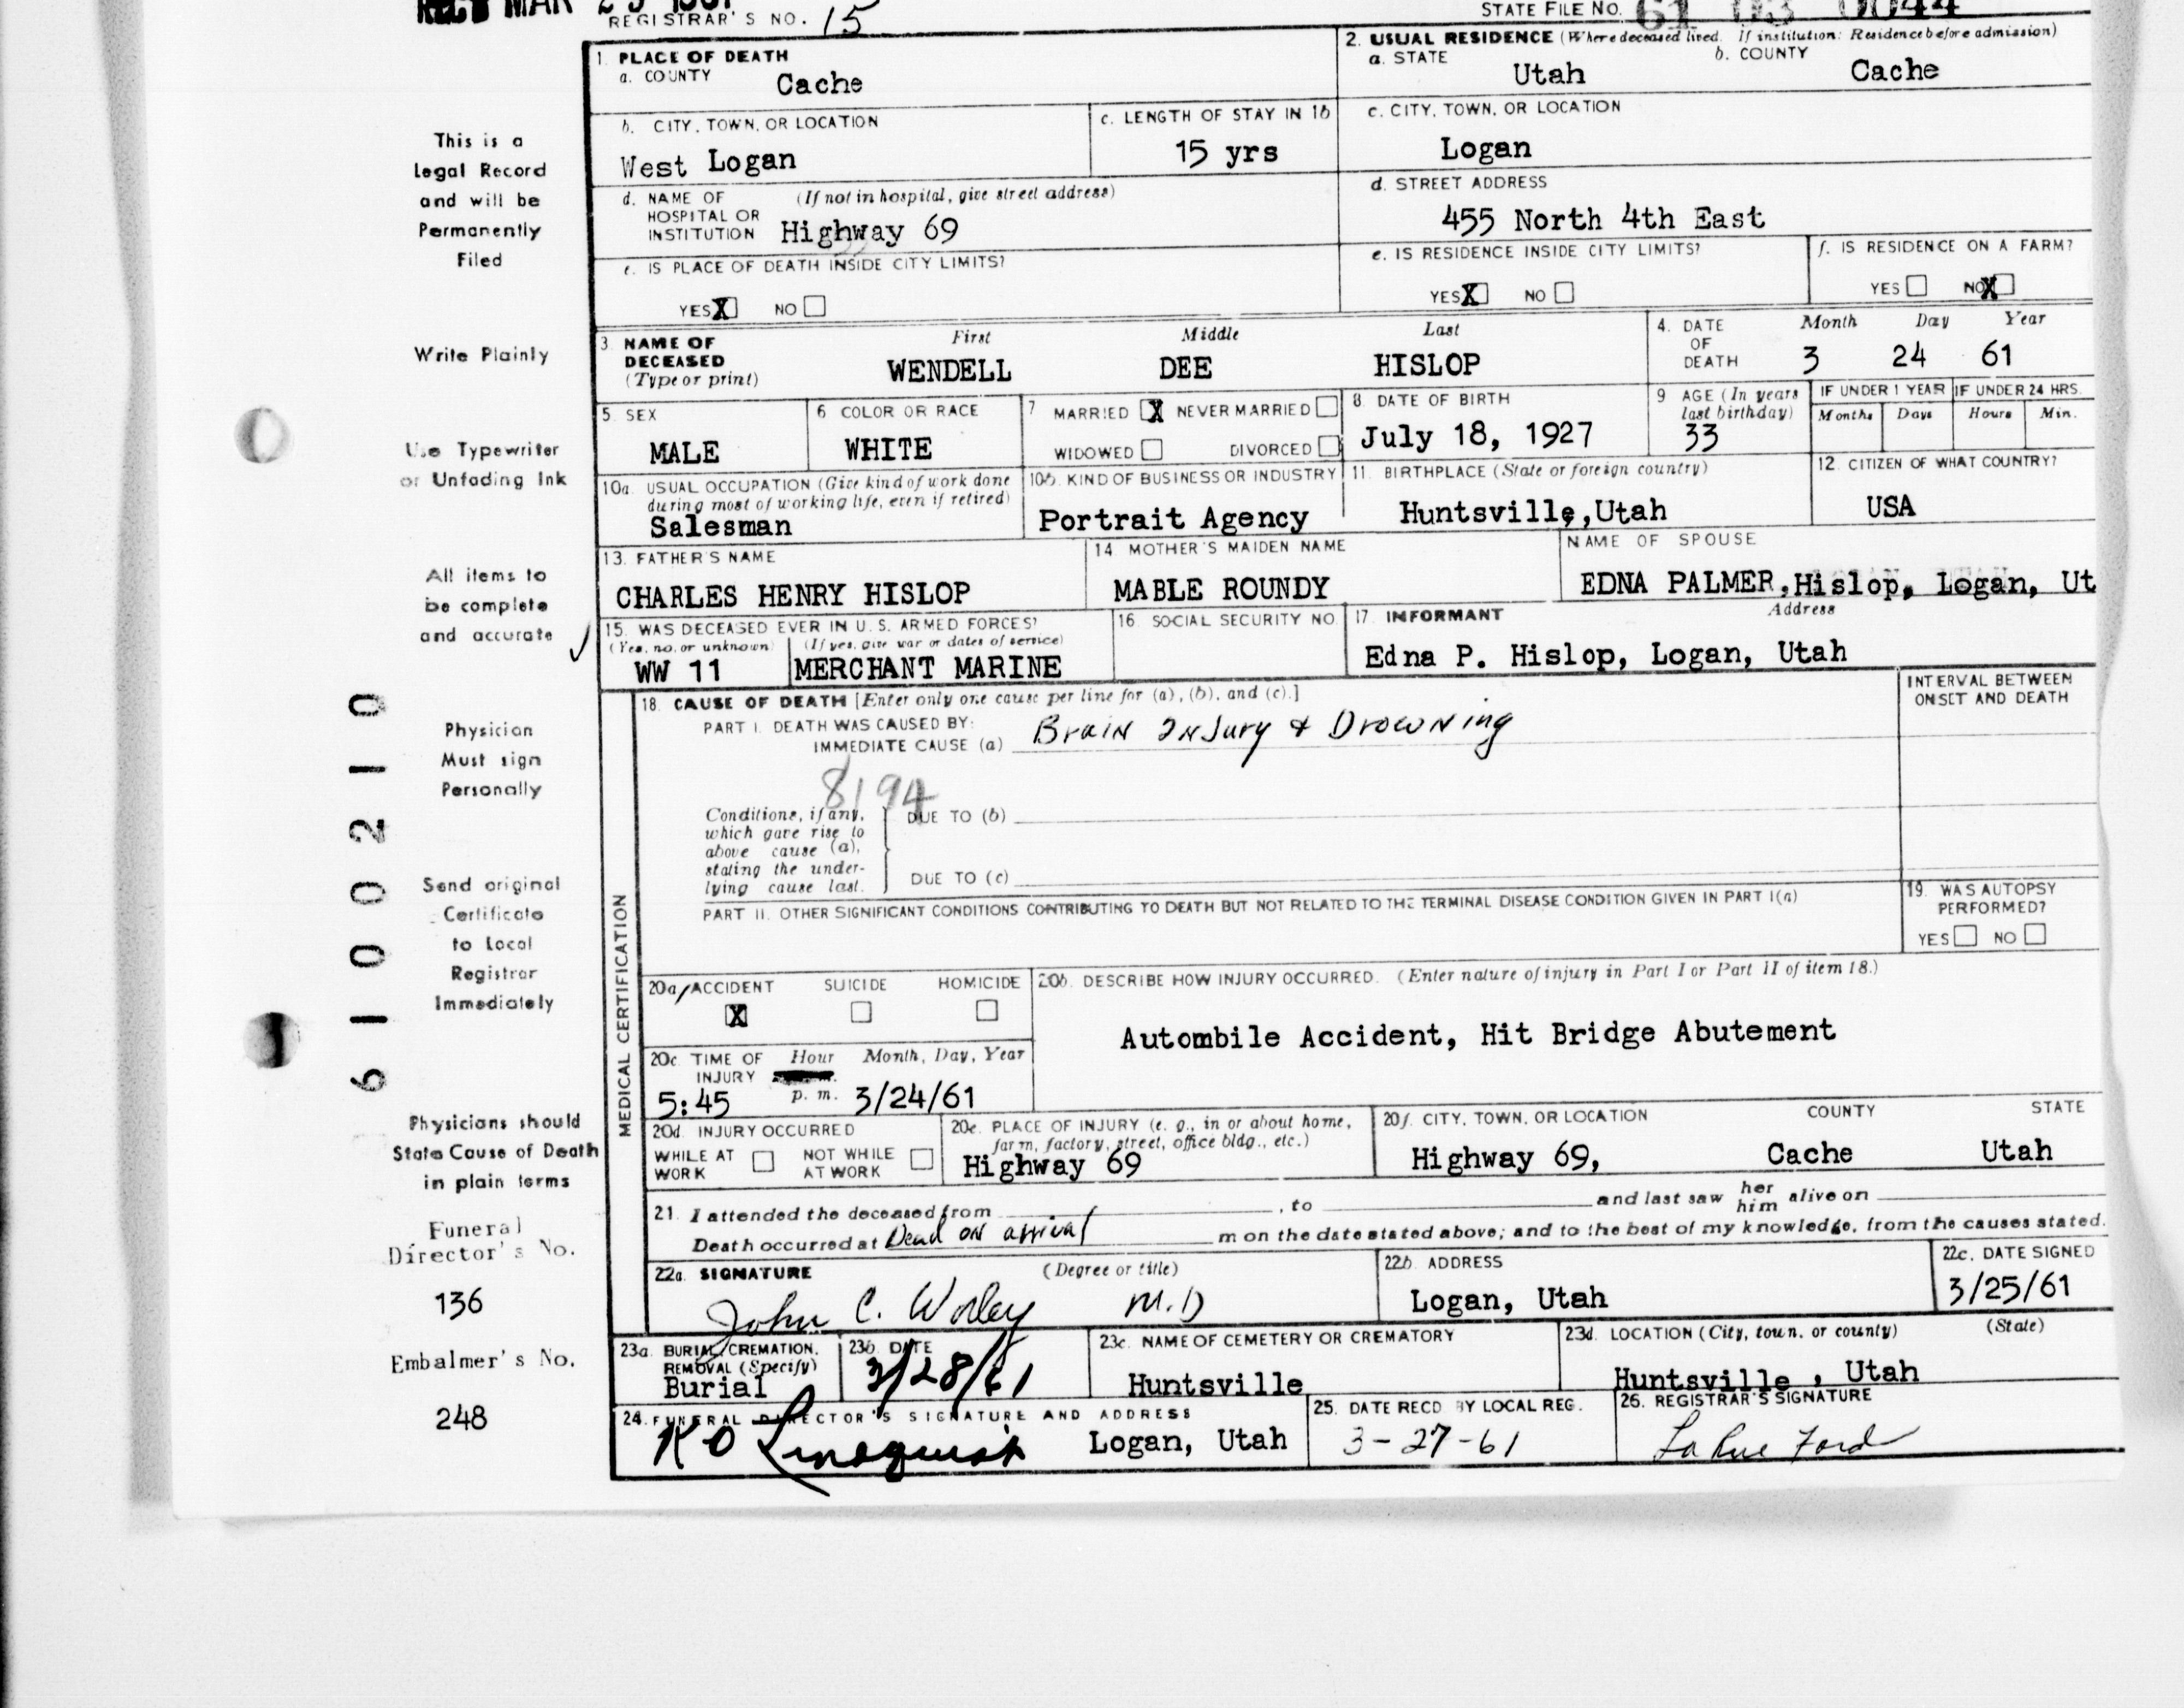 REC'D MAR 29 1961
REGISTRAR'S NO. 15
STATE FILE NO. 61 03 0044
1. PLACE OF DEATH
a. COUNTY Cache
2. USUAL RESIDENCE (Where deceased lived. If institution: Residence before admission)
a. STATE Utah b. COUNTY Cache
b. CITY, TOWN, OR LOCATION
West Logan
c. LENGTH OF STAY IN 1b
15 yrs
c. CITY, TOWN, OR LOCATION
Logan
d. NAME OF HOSPITAL OR INSTITUTION (If not in hospital, give street address)
Highway 69
d. STREET ADDRESS
455 North 4th East
e. IS PLACE OF DEATH INSIDE CITY LIMITS?
YES X NO
e. IS RESIDENCE INSIDE CITY LIMITS?
YES X NO
f. IS RESIDENCE ON A FARM?
YES NO X
3. NAME OF DECEASED (Type or print)
First Middle Last
WENDELL DEE HISLOP
4. DATE OF DEATH
Month Day Year
3 24 61
5. SEX
MALE
6 COLOR OR RACE
WHITE
7 MARRIED X NEVER MARRIED
WIDOWED DIVORCED
8. DATE OF BIRTH
July 18, 1927
9 AGE (In years last birthday)
33
IF UNDER 1 YEAR IF UNDER 24 HRS.
Months Days Hours Min.
10a. USUAL OCCUPATION (Give kind of work done during most of working life, even if retired)
Salesman
10b. KIND OF BUSINESS OR INDUSTRY
Portrait Agency
11. BIRTHPLACE (State or foreign country)
Huntsville,Utah
12. CITIZEN OF WHAT COUNTRY?
USA
13. FATHER'S NAME
CHARLES HENRY HISLOP
14. MOTHER'S MAIDEN NAME
MABLE ROUNDY
NAME OF SPOUSE
EDNA PALMER,Hislop, Logan, Ut
15. WAS DECEASED EVER IN U. S. ARMED FORCES?
(Yes, no, or unknown) (If yes, give war or dates of service)
WW 11 MERCHANT MARINE
16. SOCIAL SECURITY NO.
17. INFORMANT Address
Edna P. Hislop, Logan, Utah
18. CAUSE OF DEATH [Enter only one cause per line for (a), (b), and (c).]
INTERVAL BETWEEN ONSET AND DEATH
PART I. DEATH WAS CAUSED BY:
IMMEDIATE CAUSE (a) Brain Injury & Drowning
8194
Conditions, if any, which gave rise to above cause (a), stating the underlying cause last.
DUE TO (b)
DUE TO (c)
PART II. OTHER SIGNIFICANT CONDITIONS CONTRIBUTING TO DEATH BUT NOT RELATED TO THE TERMINAL DISEASE CONDITION GIVEN IN PART I(a)
19. WAS AUTOPSY PERFORMED?
YES NO
MEDICAL CERTIFICATION
20a. ACCIDENT SUICIDE HOMICIDE
X
20b. DESCRIBE HOW INJURY OCCURRED. (Enter nature of injury in Part I or Part II of item 18.)
Autombile Accident, Hit Bridge Abutement
20c. TIME OF INJURY Hour Month, Day, Year
5:45 p. m. 3/24/61
20d. INJURY OCCURRED
WHILE AT WORK NOT WHILE AT WORK
20e. PLACE OF INJURY (e. g., in or about home, farm, factory, street, office bldg., etc.)
Highway 69
20f. CITY, TOWN, OR LOCATION COUNTY STATE
Highway 69, Cache Utah
21. I attended the deceased from , to and last saw her him alive on
Death occurred at Dead on arrival m on the date stated above; and to the best of my knowledge, from the causes stated.
22a. SIGNATURE (Degree or title)
John C. Worley M.D
22b. ADDRESS
Logan, Utah
22c. DATE SIGNED
3/25/61
23a. BURIAL, CREMATION, REMOVAL (Specify)
Burial
23b. DATE
3/28/61
23c. NAME OF CEMETERY OR CREMATORY
Huntsville
23d. LOCATION (City, town, or county) (State)
Huntsville , Utah
24. FUNERAL DIRECTOR'S SIGNATURE AND ADDRESS
K O Lindquist Logan, Utah
25. DATE RECD BY LOCAL REG.
3-27-61
26. REGISTRAR'S SIGNATURE
LaRue Ford
This is a
Legal Record
and will be
Permanently
Filed
Write Plainly
Use Typewriter
or Unfading Ink
All items to
be complete
and accurate
Physician
Must sign
Personally
Send original
Certificate
to Local
Registrar
Immediately
6 1 0 0 2 1 0
Physicians should
State Cause of Death
in plain terms
Funeral
Director's No.
136
Embalmer's No.
248